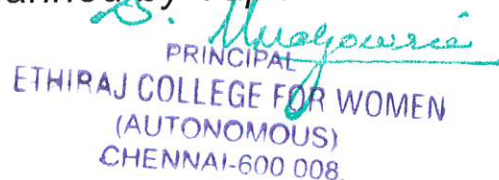 PRINCIPAL
ETHIRAJ COLLEGE FOR WOMEN
(AUTONOMOUS)
CHENNAI-600 008.